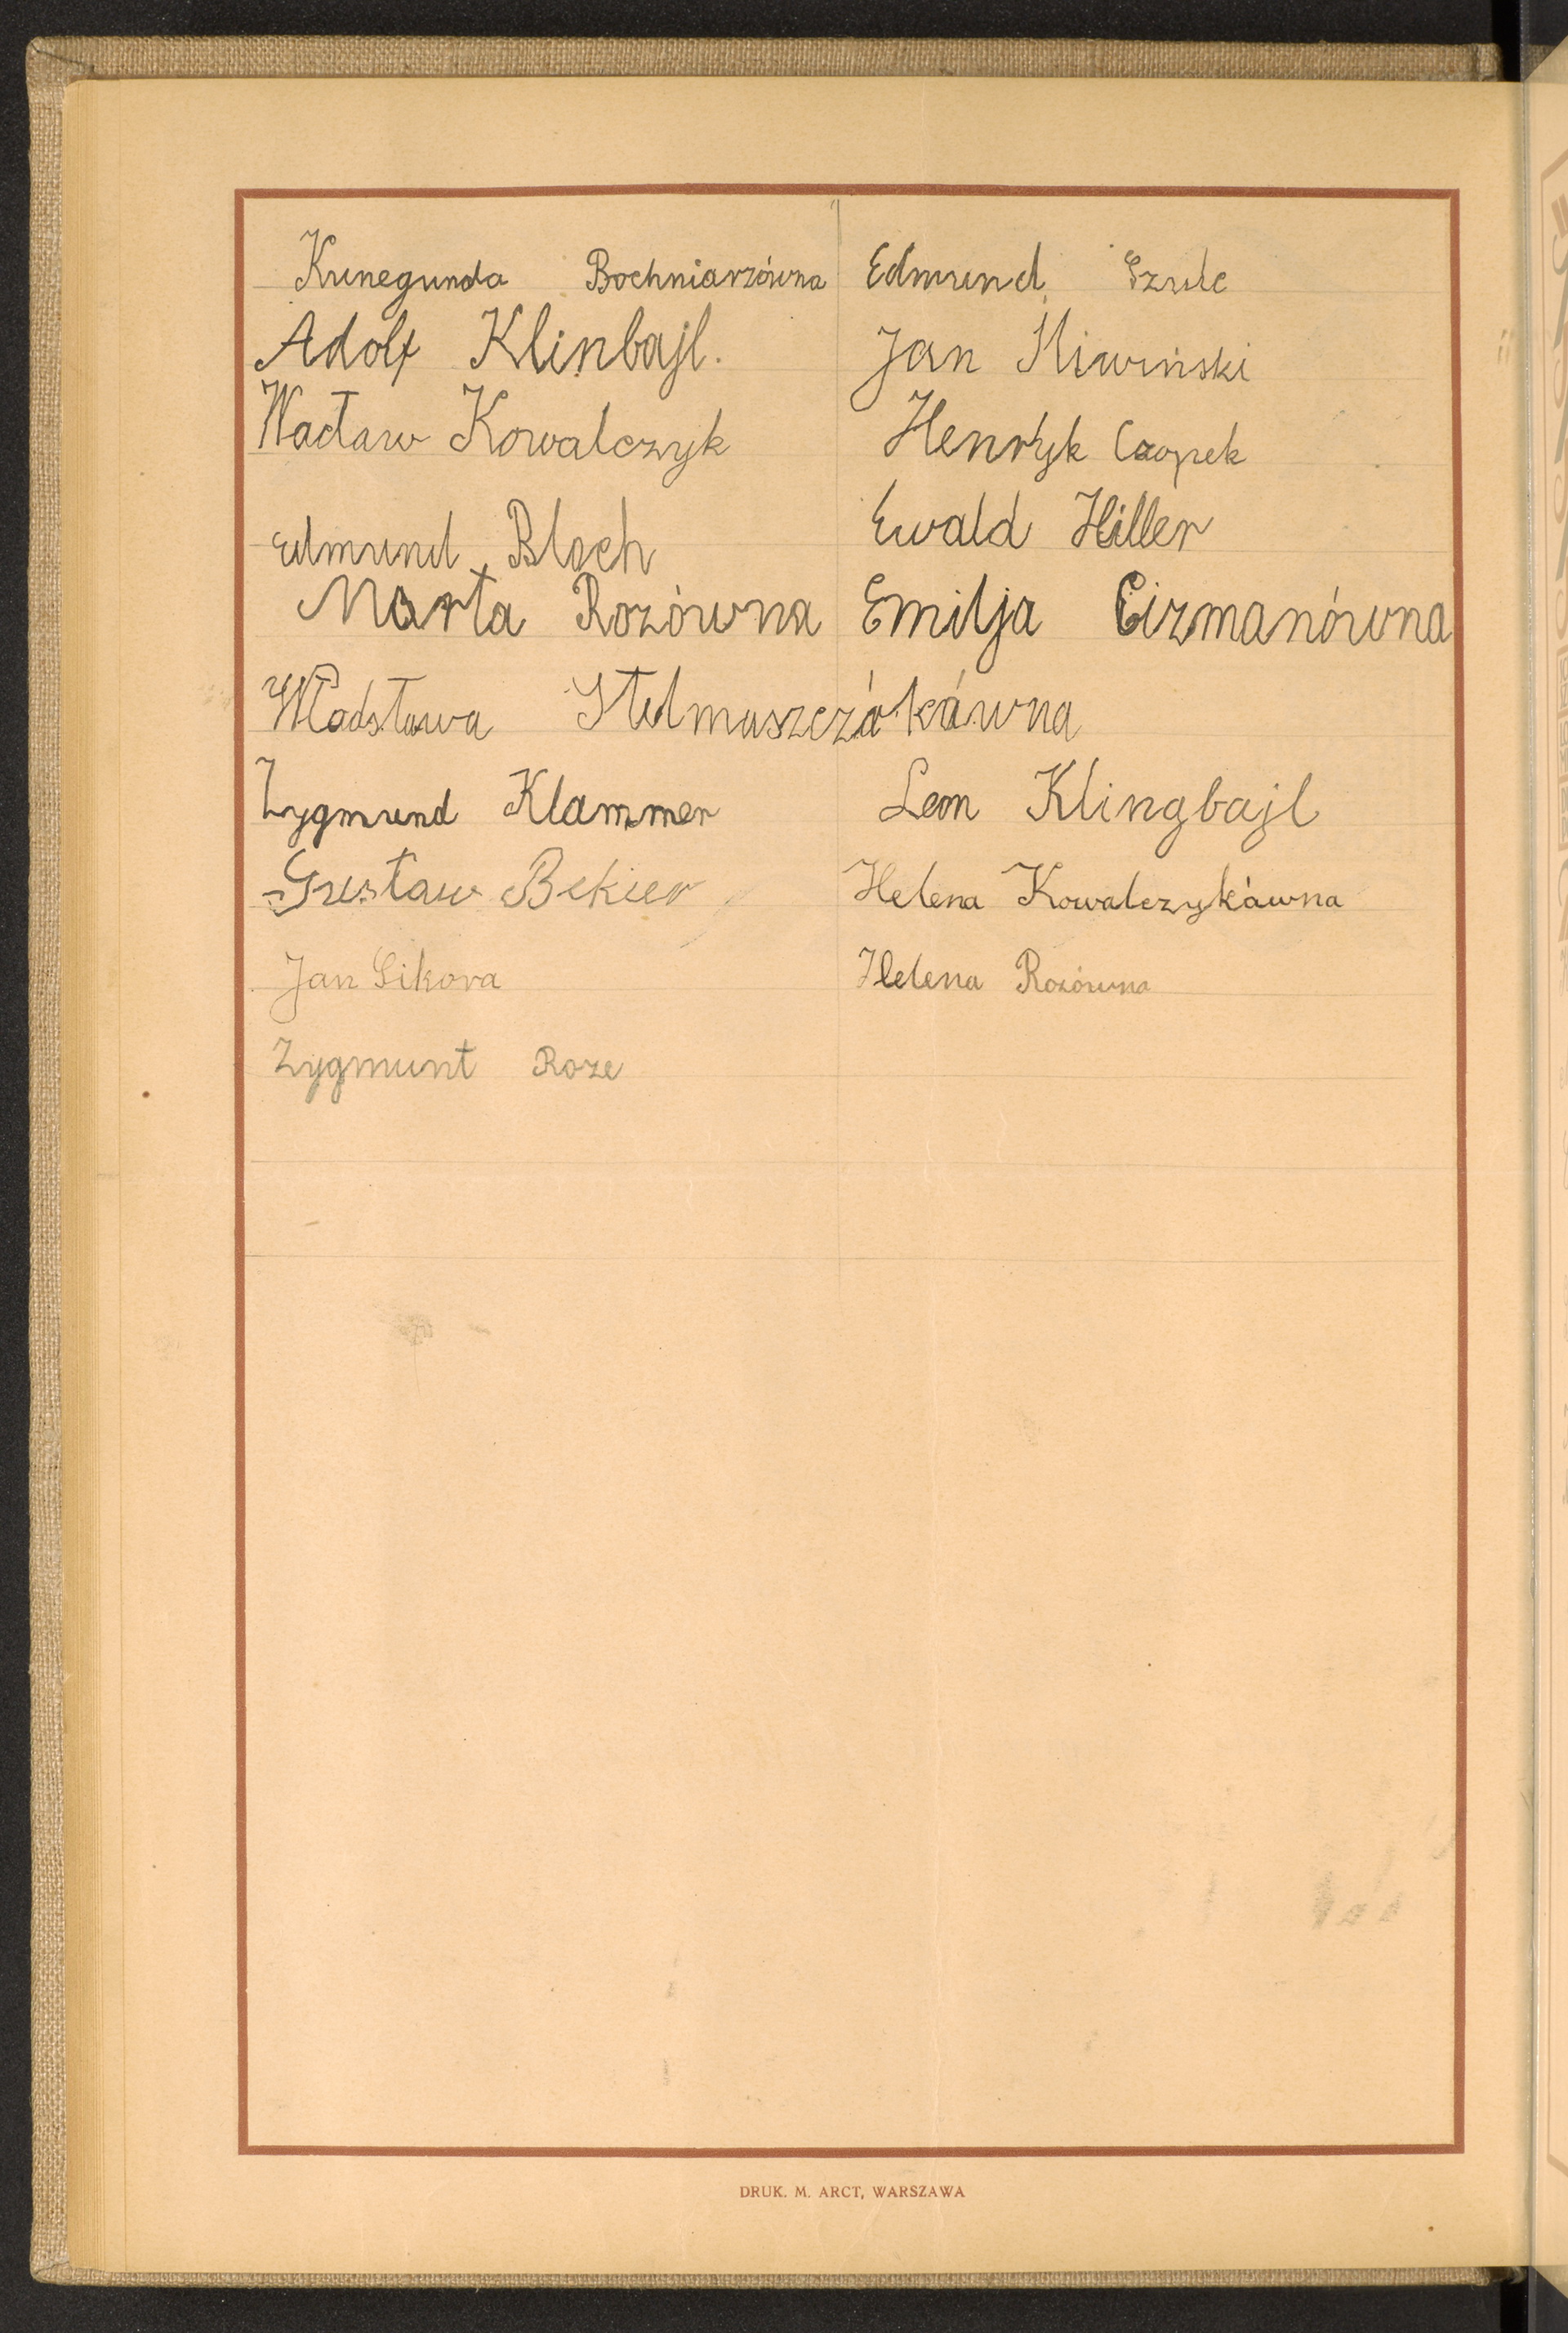 Kunegunda Bochniarzówna Edmund Szulc
Adolf Klinbajl. Jan Śliwiński
Wacław Kowalczyk Henryk Czopek
Edmund Bloch Ewald Hiller
Marta Rozówna Emilja Cizmanówna
Władsława Stelmaszczákáwna
Zygmund Klammer Leon Klingbajl
Gustaw Bekier Helena Kowalczykáwna
Jan Sikora Helena Rozówna
Zygmunt Roze
DRUK. M. ARCT, WARSZAWA